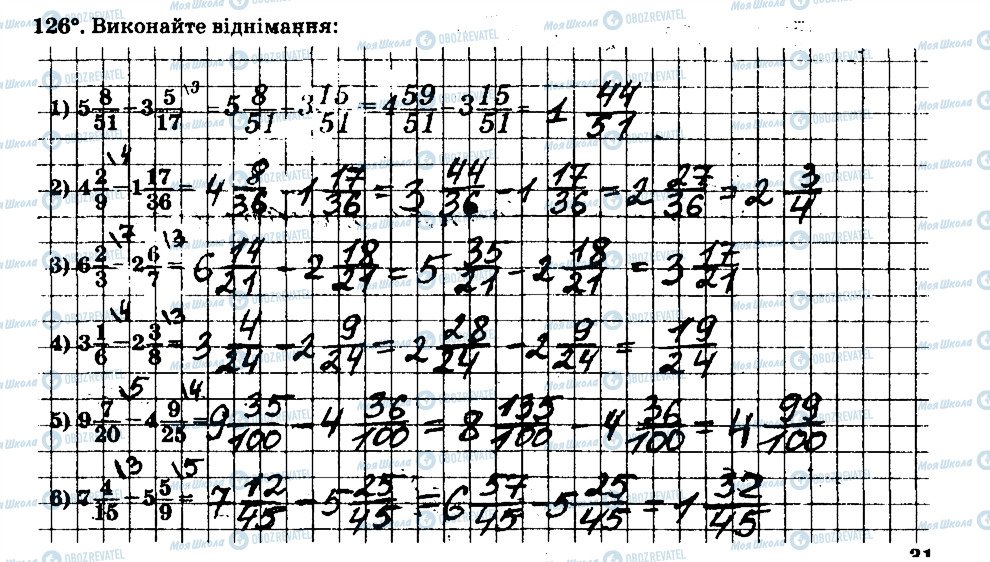 126°. Виконайте віднімання:
1) 5 8/51 − 3 5/17 \3 = 5 8/51 − 3 15/51 = 4 59/51 − 3 15/51 = 1 44/51.
2) 4 2/9 \4 − 1 17/36 = 4 8/36 − 1 17/36 = 3 44/36 − 1 17/36 = 2 27/36 = 2 3/4
3) 6 2/3 \7 − 2 6/7 \3 = 6 14/21 − 2 18/21 = 5 35/21 − 2 18/21 = 3 17/21
4) 3 1/6 \4 − 2 3/8 \3 = 3 4/24 − 2 9/24 = 2 28/24 − 2 9/24 = 19/24
5) 9 7/20 \5 − 4 9/25 \4 = 9 35/100 − 4 36/100 = 8 135/100 − 4 36/100 = 4 99/100
6) 7 4/15 \3 − 5 5/9 \5 = 7 12/45 − 5 25/45 = 6 57/45 − 5 25/45 = 1 32/45
31
Моя Школа OBOZREVATEL